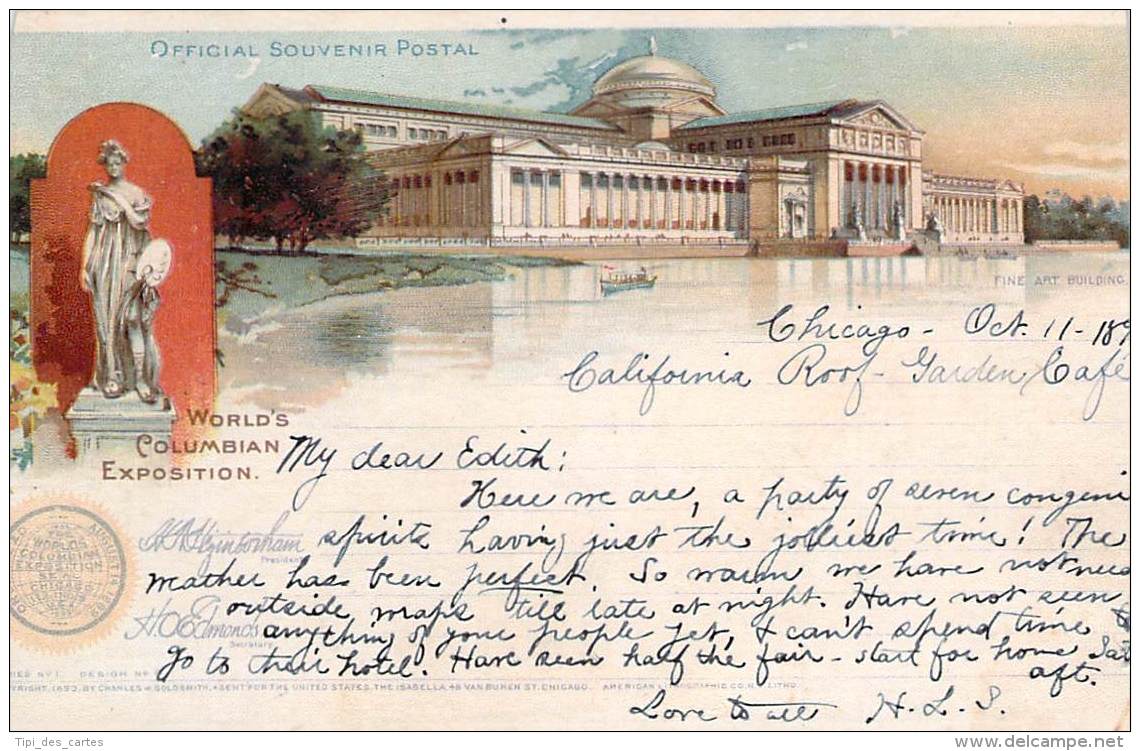 OFFICIAL SOUVENIR POSTAL
FINE ART BUILDING.
WORLD'S
COLUMBIAN
EXPOSITION.
Chicago - Oct. 11 - 189
California Roof-Garden Café
My dear Edith:
Here we are, a party of seven congeni
spirits having just the jolliest time! The
weather has been perfect. So warm we have not need
outside wraps till late at night. Have not seen
anything of your people yet, & can't spend time to
go to their hotel. Have seen half the fair - start for home Sat
aft.
Love to all H. L. S.
President
H.O. Edmonds
Secretary
WORLD'S
COLUMBIAN
EXPOSITION
AUGUST
RIES Nº 1. DESIGN Nº
PYRIGHT, 1893, BY CHARLES W. GOLDSMITH, AGENT FOR THE UNITED STATES, THE ISABELLA, 48 VAN BUREN ST. CHICAGO. AMERICAN LITHOGRAPHIC CO. N.Y. LITHO.
Tipi_des_cartes
www.delcampe.net